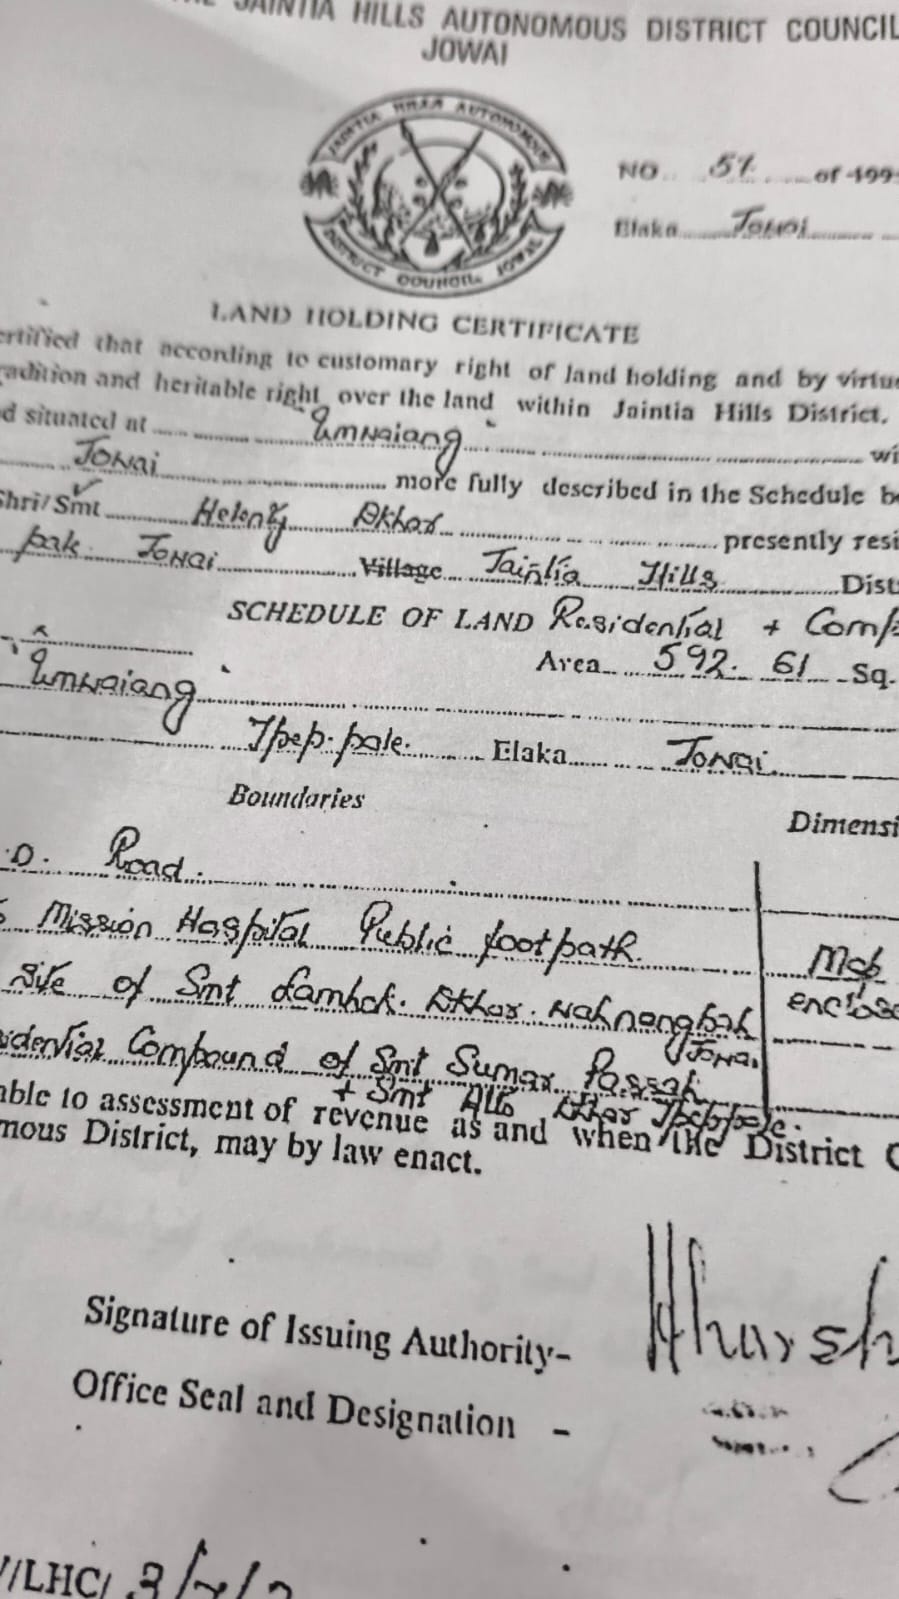 JAINTIA HILLS AUTONOMOUS DISTRICT COUNCIL
JOWAI
JAINTIA HILLS AUTONOMOUS
DISTRICT COUNCIL JOWAI
NO 57 of 199
Elaka Jowai
LAND HOLDING CERTIFICATE
ertified that according to customary right of land holding and by virtue
adition and heritable right over the land within Jaintia Hills District.
d situated at Umwaiang wi
Jowai more fully described in the Schedule b
Shri/Smt Helen Dkhar presently resi
pale Jowai Village Jaintia Hills Dist
SCHEDULE OF LAND Residential + Comp
Area 592.61 Sq.
Umwaiang
Tpep-pale Elaka Jowai
Boundaries
Dimensi
.D. Road.
Mission Hospital Public footpath.
Mob
Site of Smt Lamhok Dkhar. Wahnongbah
enclose
Jowai
idential Compound of Smt Sumar Passah
+ Smt Dkhar Tpeppale.
able to assessment of revenue as and when the District C
mous District, may by law enact.
Signature of Issuing Authority-
Office Seal and Designation -
/LHC/